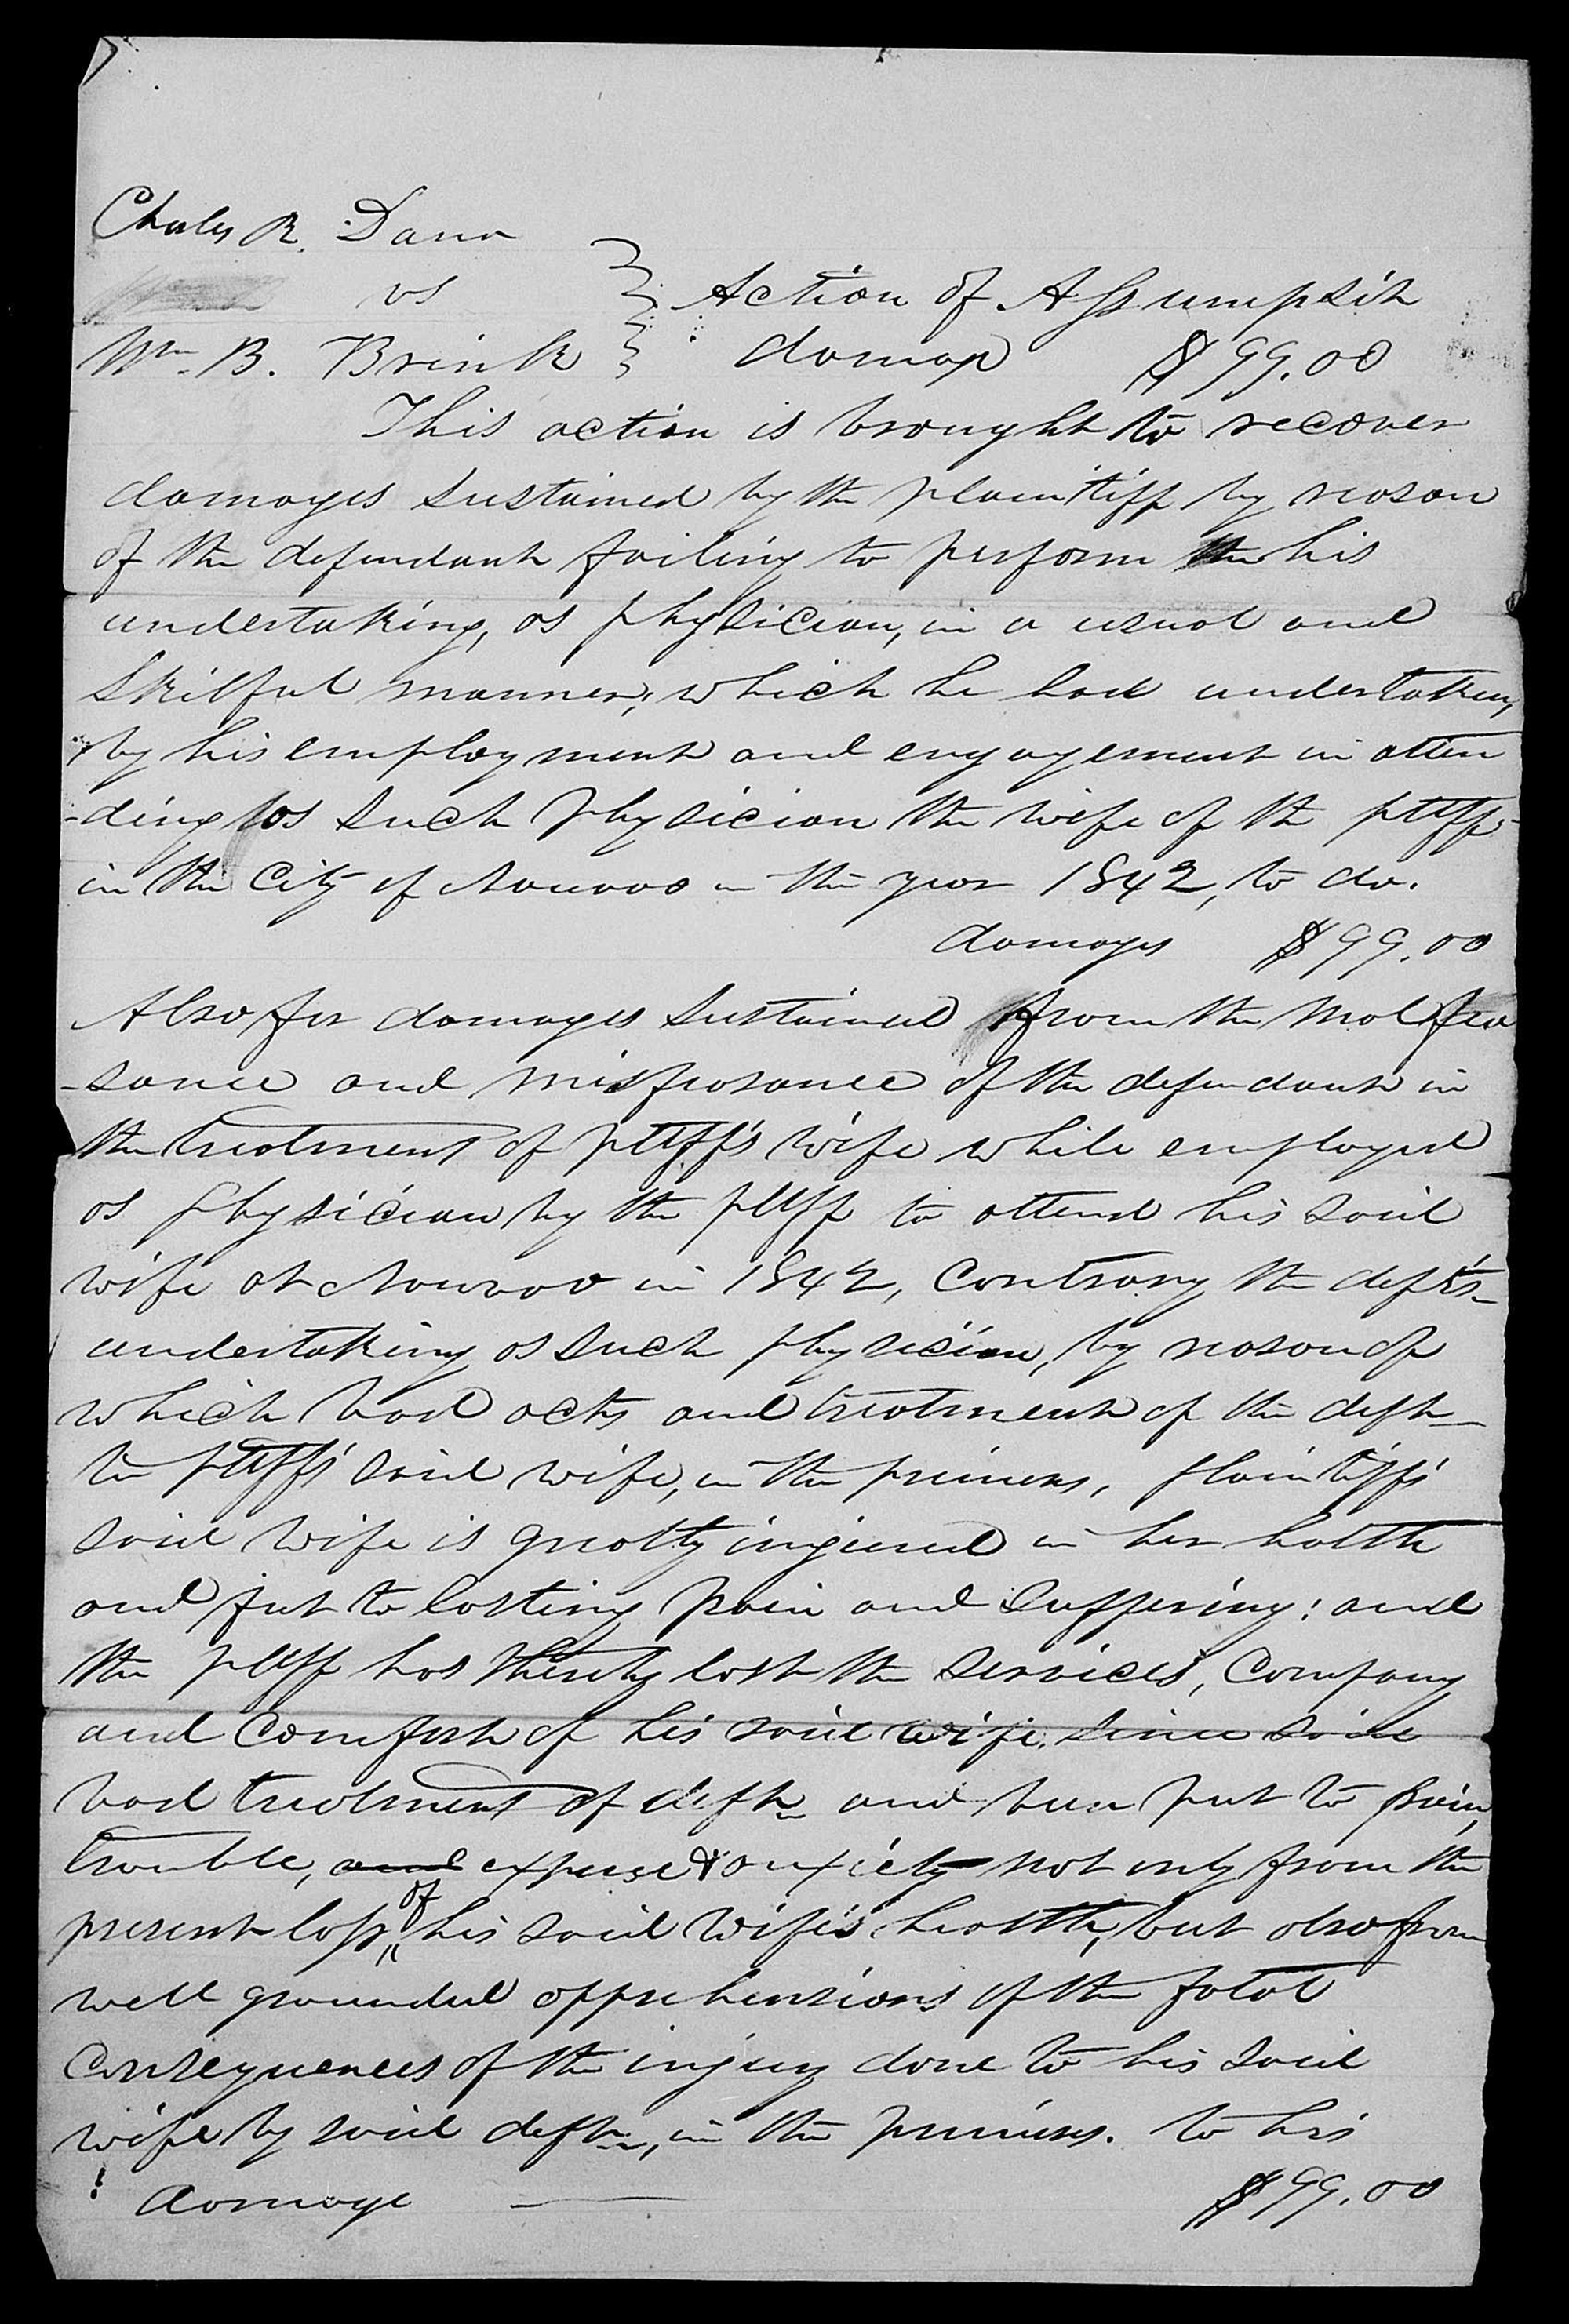 Charles R. Dana
vs } Action of Assumpsit
Wm. B. Brink } damage $99.00
This action is brought to recover
damages sustained by the plaintiff by reason
of the defendant failing to perform the his
undertaking, as physician, in a usual and
skilful manner, which he had undertaken,
by his employment and engagement in atten
-ding as such physician the wife of the pltff
in the City of Nauvoo in the year 1842, to do.
damages $99.00
Also for damages sustained from the malfea
-sance and misfeasance of the defendant in
the treatment of pltff's wife while employed
as physician by the pltff to attend his said
wife at Nauvoo in 1842, contrary the deft's
undertaking as such physician, by reason of
which bad acts and treatment of the deft
to pltff's said wife, in the premises, plaintiff's
said wife is greatly injured in her halth
and put to lasting pain and suffering: and
the pltff has thereby lost the services, company
and comfort of his said wife, since said
bad treatment of deft. and been put to pain,
trouble, and expense & anxiety not only from the
present loss of his said wife's health, but also from
well grounded apprehensions of the fatal
consequences of the injury done to his said
wife by said deft., in the premises. to his
damage — $99.00